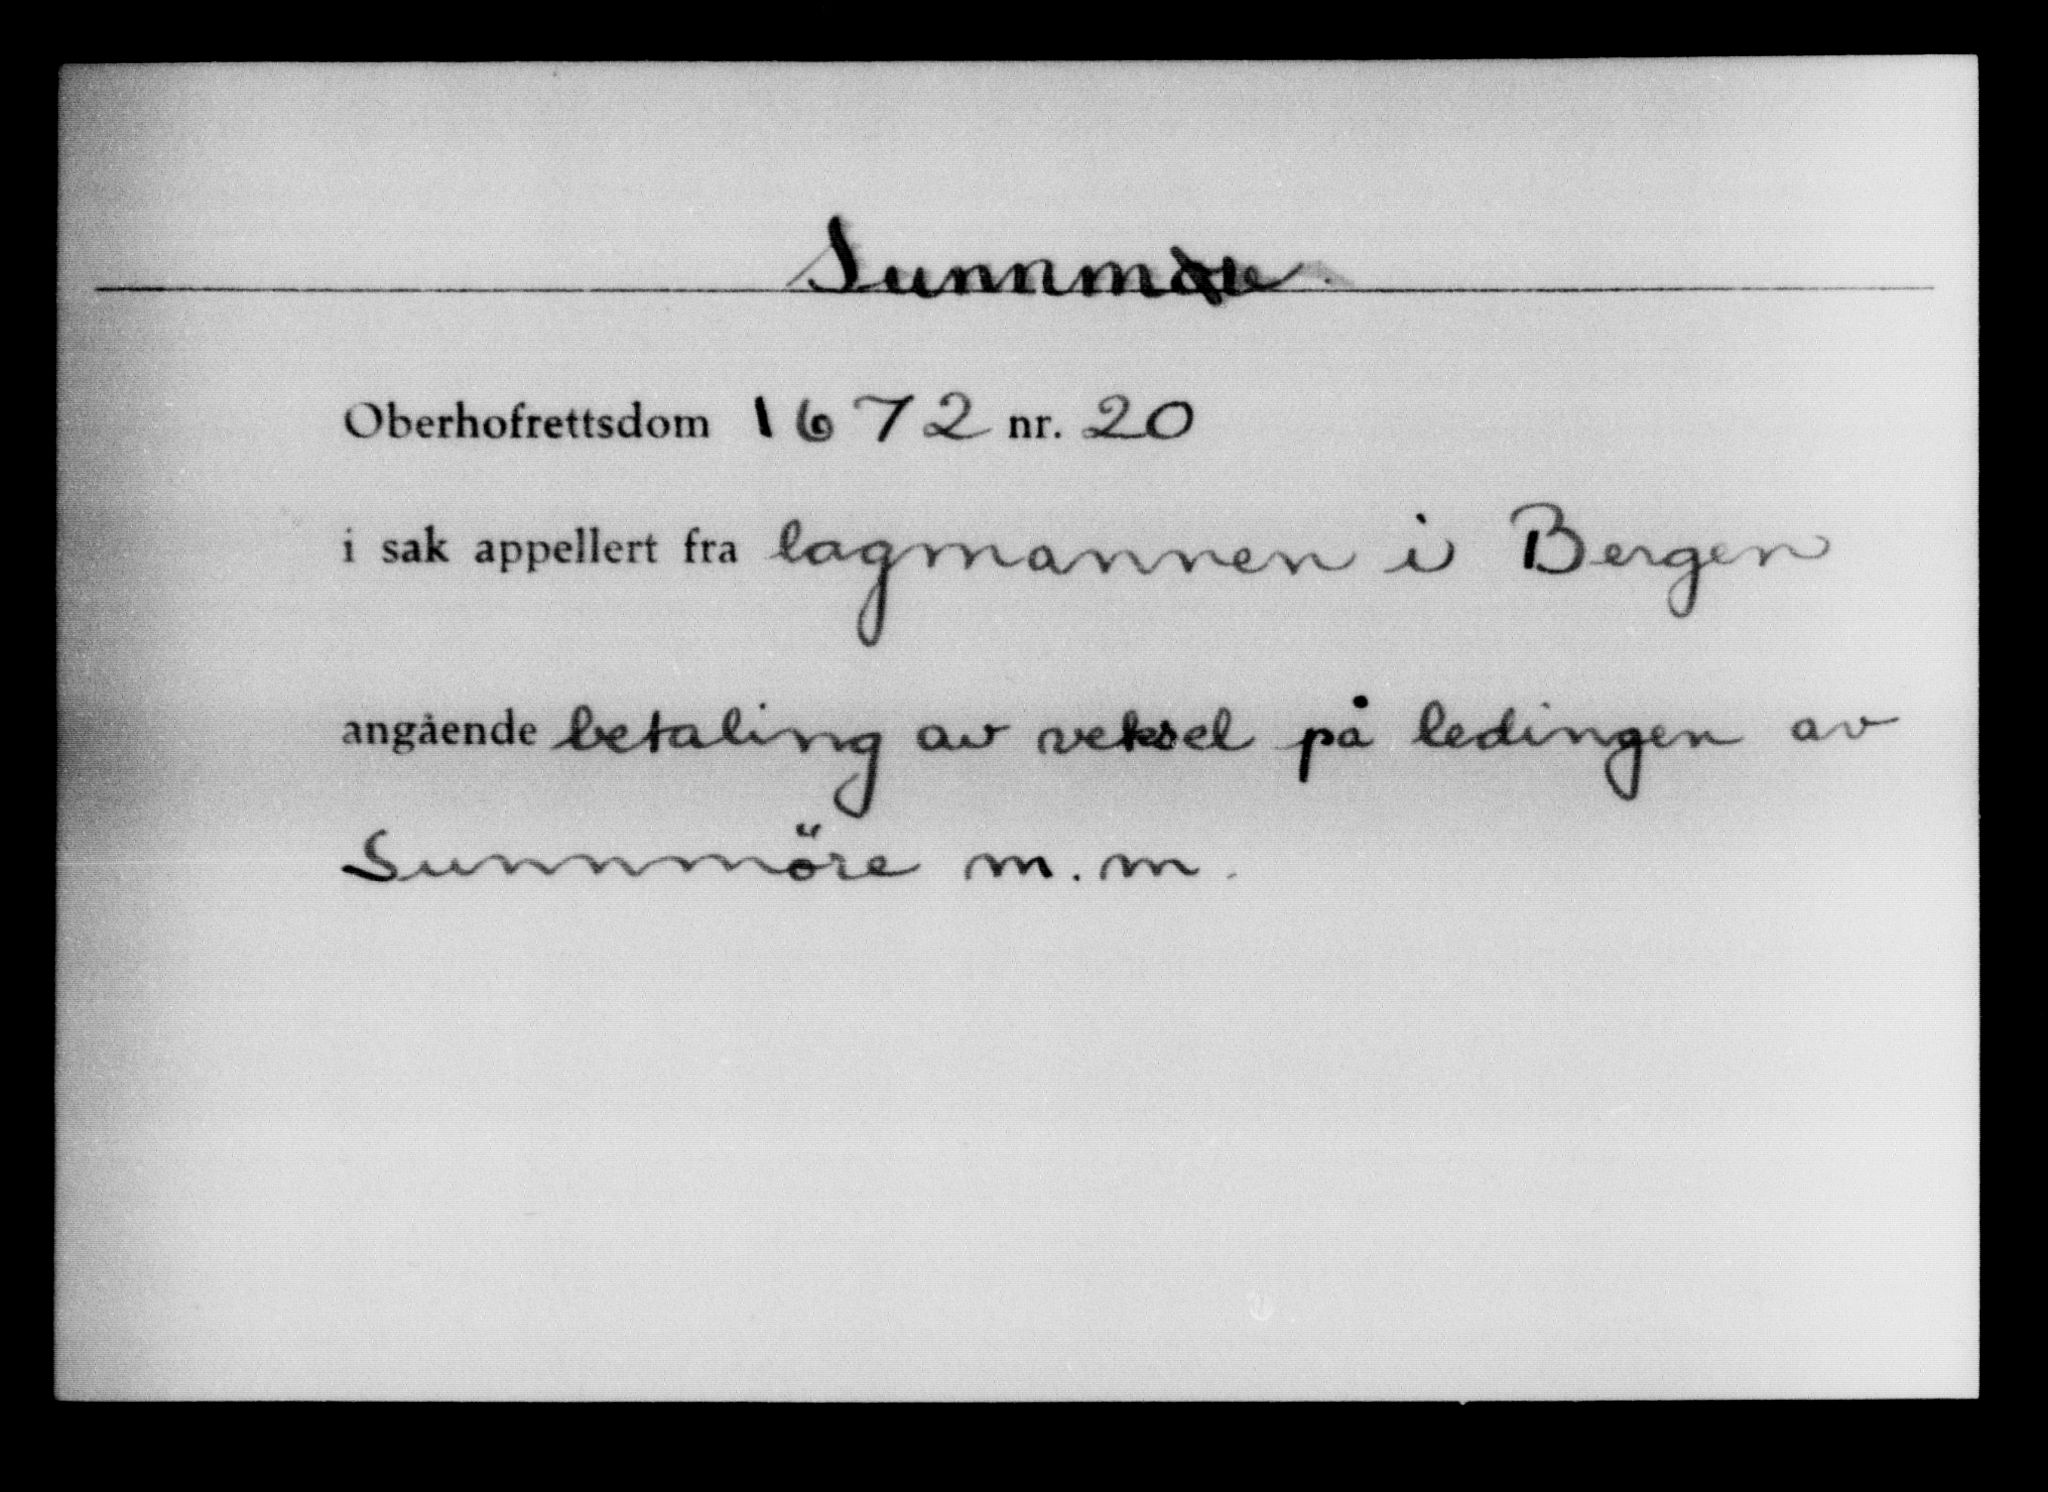 Sunnmøre
Oberhofrettsdom 1672 nr. 20
i sak appellert fra lagmannen i Bergen
angående betaling av veksel på ledingen av
Sunnmöre m.m.